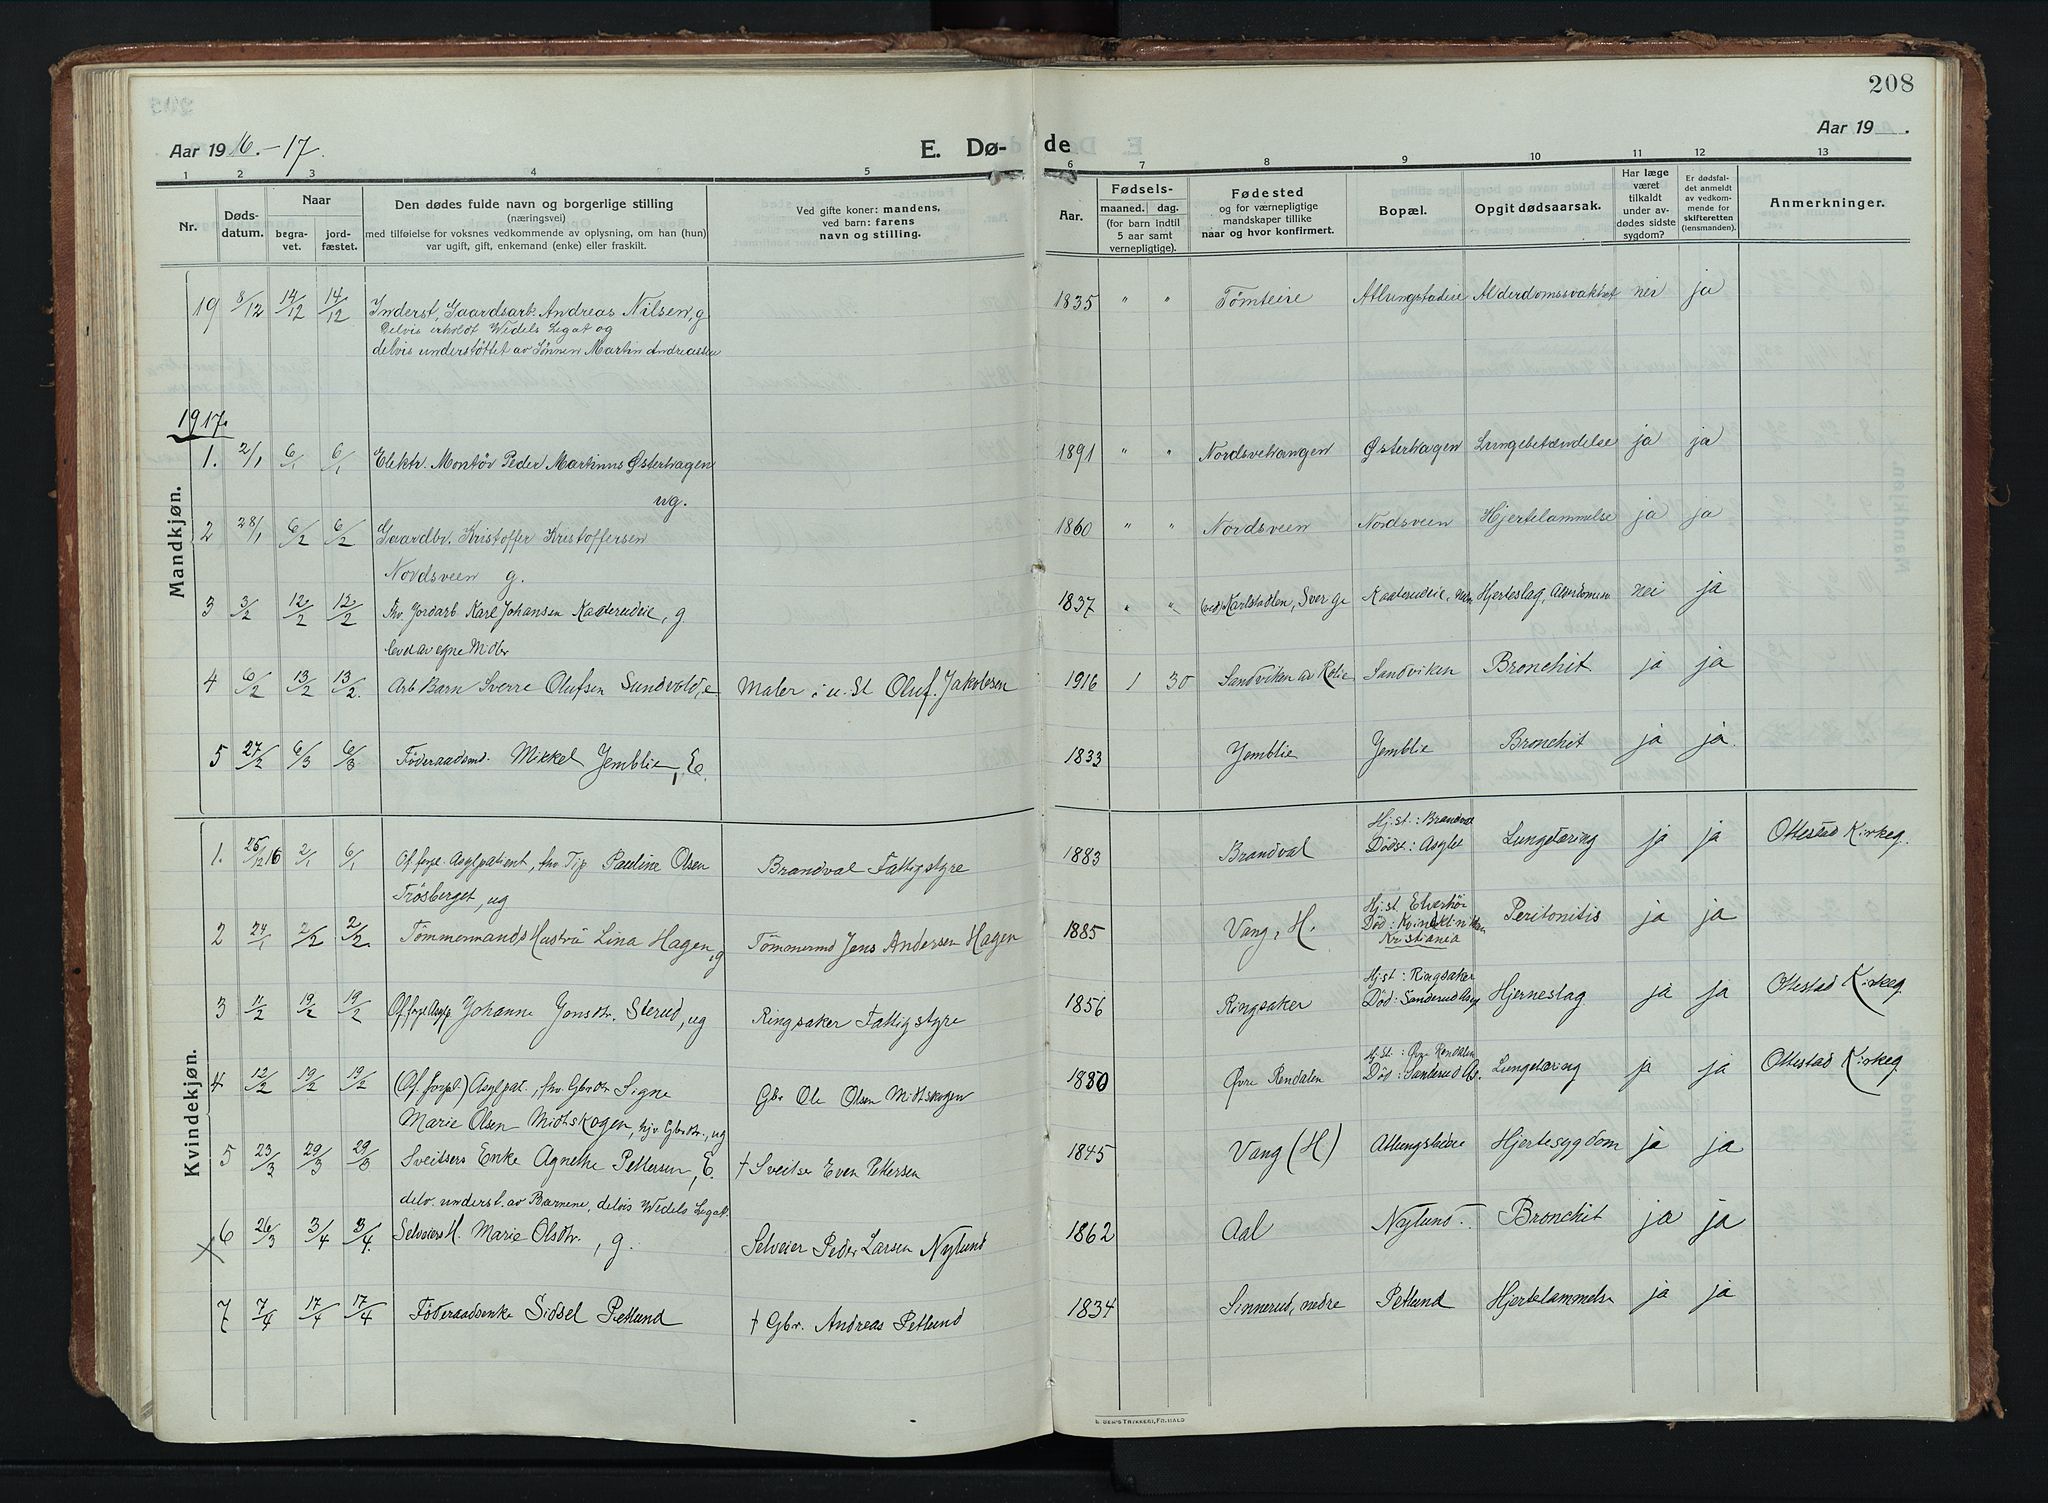 208
Aar 1916.-17.
E. Dø-
de
Aar 19 .
1 2 3 4 5 6 7 8 9 10 11 12 13
Nr.
Døds-
datum.
Naar
begra-
vet.
jord-
fæstet.
Den dødes fulde navn og borgerlige stilling
(næringsvei)
med tilføielse for voksnes vedkommende av oplysning, om han (hun)
var ugift, gift, enkemand (enke) eller fraskilt.
Ved gifte koner: mandens,
ved barn: farens
navn og stilling.
Aar.
Fødsels-
maaned. dag.
(for barn indtil
5 aar samt
vernepligtige).
Fødested
og for værnepligtige
mandskaper tillike
naar og hvor konfirmert.
Bopæl.
Opgit dødsaarsak.
Har læge
været
tilkaldt
under av-
dødes sidste
sygdom?
Er dødsfal-
det anmeldt
av vedkom-
mende for
skifteretten
(lensmanden).
Anmerkninger.
19 8/12 14/12 14/12 Inderst, Gaardsarb. Andreas Nilsen, g. 1835 " " Tømteeie Atlungstadeie Alderdomssvakhet nei ja
Delvis erholdt Wedels Legat og
delvis understøttet av Sønnen Martin Andreassen
1917.
Mandkjøn.
1. 2/1 6/1 6/1 Elektr. Montør Peder Martinus Østerhagen 1891 " " Nordsvehangen Østerhagen Lungebetændelse ja ja
ug.
2 28/1 6/2 6/2 Gaardbr. Kristoffer Kristoffersen 1860 " " Nordsveen Nordsveen Hjertelammelse ja ja
Nordsveen g.
3 3/2 12/2 12/2 Fhv. Jordarb. Karl Johansen Kaaterudeie, g 1837 " " (ved) Karlstad, Sverige Kaaterudeie, Hjerteslag, nei ja
levet av egne Midler
4 6/2 13/2 13/2. Arb Barn Sverre Olufsen Sundvold, e Maler i u. St Oluf. Jakobsen 1916 1 30 Sandviken av Sandviken Bronchit ja ja
5 27/2 6/3 6/3 Føderaadsmd. Mikkel Jemblie, E. 1833 Jemblie Jemblie Bronchit ja ja.
Kvindekjøn.
1. 26/12 16 2/1 6/1 Of. forpl. Asylpatient, fhv Tj. Pauline Olsen Brandval Fattigstyre 1883 Brandval Hj.st.: Brandval Dødst: Asylet Lungetæring ja ja Ottestad Kirkeg.
Trøsberget, ug
2 24/1 2/2 2/2. Tømmermands Hustru Lina Hagen, g Tømmermd Jens Andersen Hagen 1885 Vang, H. Hj.st Elverhøi Død: Kvindeklinikken Kristiania Peritonitis ja ja
3 11/2 19/2 19/2 Of forpl Asylp Johanne Jonsdtr. Sterud, ug Ringsaker Fattigstyre 1856 Ringsaker Hj.st: Ringsaker Død: Sanderud Asyl Hjerneslag ja ja Ottestad Kirkeg
4 12/2 19/2 19/2 (Of. forpl.) Asylpat., fhv. Gbrdtr Signe Gbr Ole Olsen Midtskogen 1880 Øvre Rendalen Hj.st: Øvre Rendalen Død: Sanderud As. Lungetæring ja ja Ottestad Kirkeg
Marie Olsen Midtskogen, hjv. Gbrdtr., ug
5 23/3 29/3 29/3 Sveitsers Enke Agnethe Pettersen, E. † Sveitser Even Pettersen 1845 Vang (H) Atlungstadeie Hjertesygdom ja ja
delv. underst. av Børnene, delvis Wedels Legat.
× 6 26/3 3/4 3/4. Selveiers H. Marie Olsdtr., g. Selveier Peder Larsen Nylund 1862 Aal Nylund Bronchit ja ja
7 7/4 17/4 17/4 Føderaadsenke Sidsel Petlund † Gbr. Andreas Petlund 1834 Sinnerud, nedre Petlund Hjertelammelse ja ja